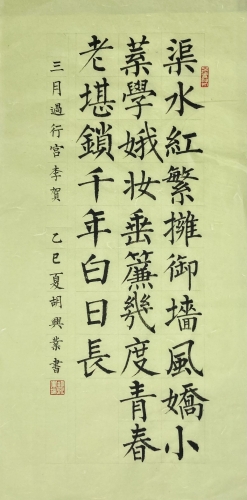 渠水紅繁擁御墻風嬌小
葉學娥妝垂簾幾度青春
老堪鎖千年白日長
三月過行宮李賀 乙巳夏胡興業書